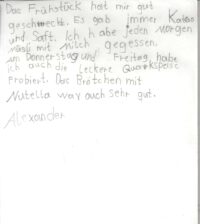 Das Frühstück hat mir gut
geschmeckt. Es gab immer Kakao
und Saft. Ich habe jeden Morgen
Müsli mit Milch gegessen.
am Donnerstag und Freitag habe
ich auch die leckere Quarkspeise
Probiert. Das Brötchen mit
Nutella war auch sehr gut.
Alexander